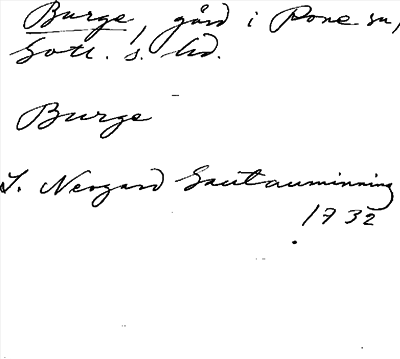 Burge, gård i Rone sn,
Gotl. s. hd.
Burge
J. Neogard Gautauminning
1732